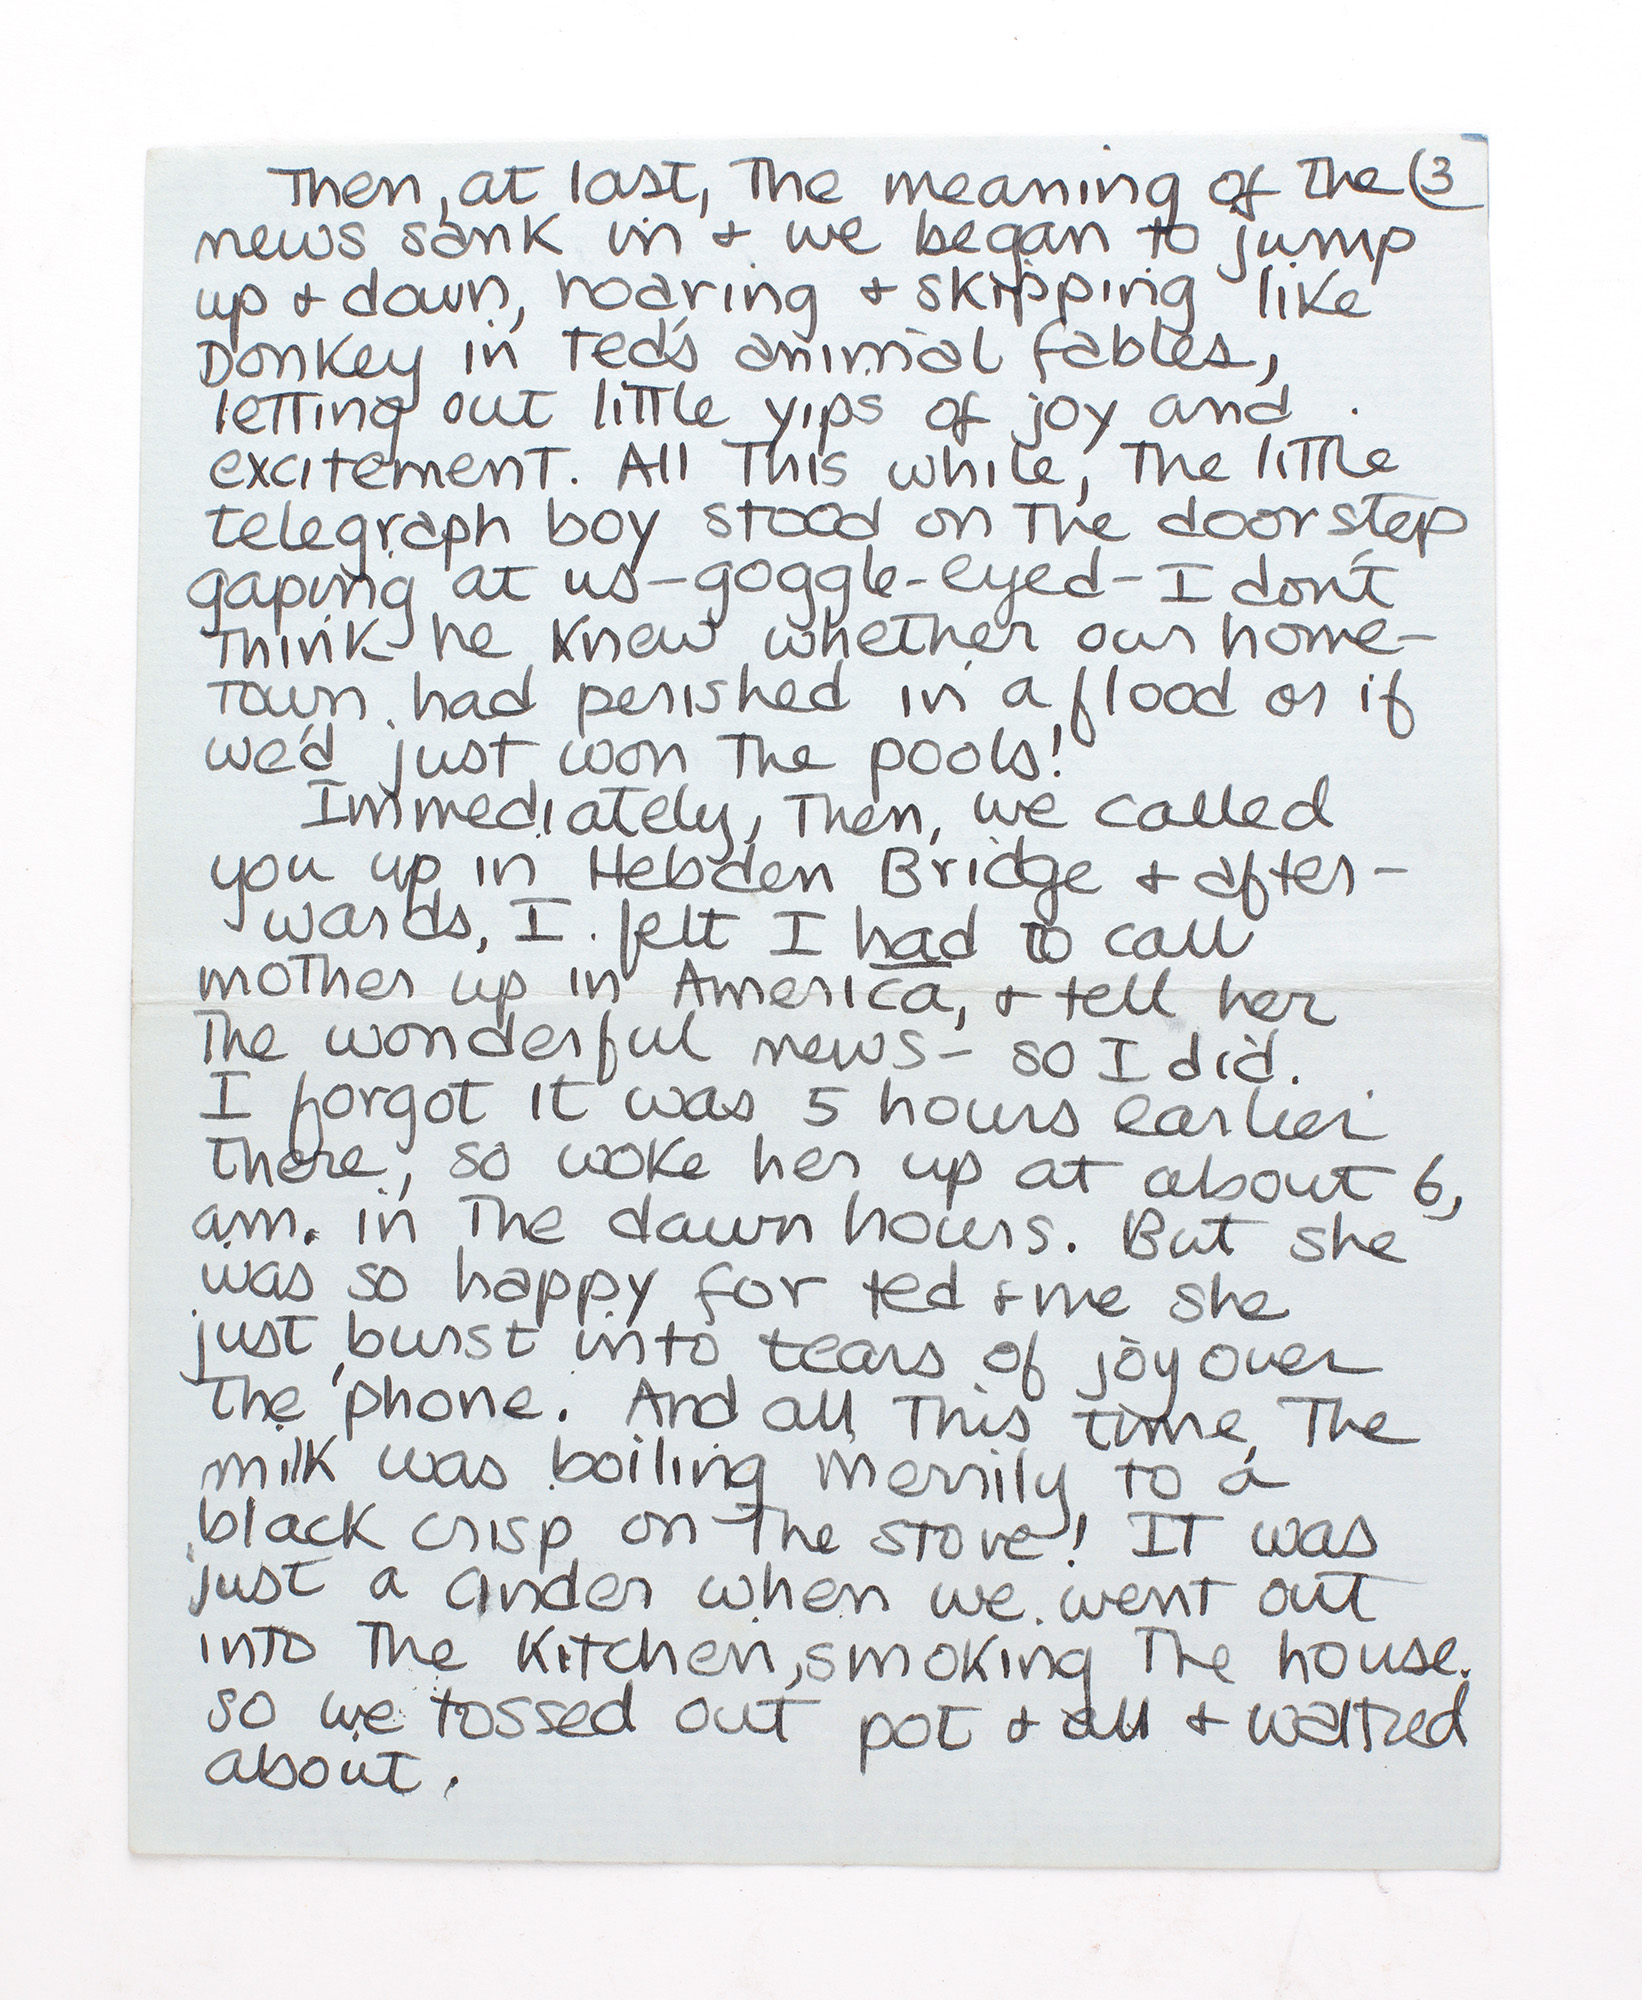 Then, at last, The meaning of The (3
news sank in + we began to jump
up + down, roaring + skipping like
Donkey in Ted's animal fables,
letting out little yips of joy and
excitement. All This while, The little
telegraph boy stood on The doorstep
gaping at us—goggle-eyed—I don't
Think he knew whether our home-
town had perished in a flood or if
we'd just won The pools!
Immediately, Then, we called
you up in Hebden Bridge + after-
wards, I felt I had to call
mother up in America, + tell her
The wonderful news— so I did.
I forgot it was 5 hours earlier
there, so woke her up at about 6,
a.m. in The dawn hours. But she
was so happy for Ted + me she
just burst into tears of joy over
The 'phone. And all This time, The
milk was boiling merrily to a
black crisp on The stove! It was
just a cinder when we went out
into The kitchen, smoking The house.
so we tossed out pot + all + waltzed
about.